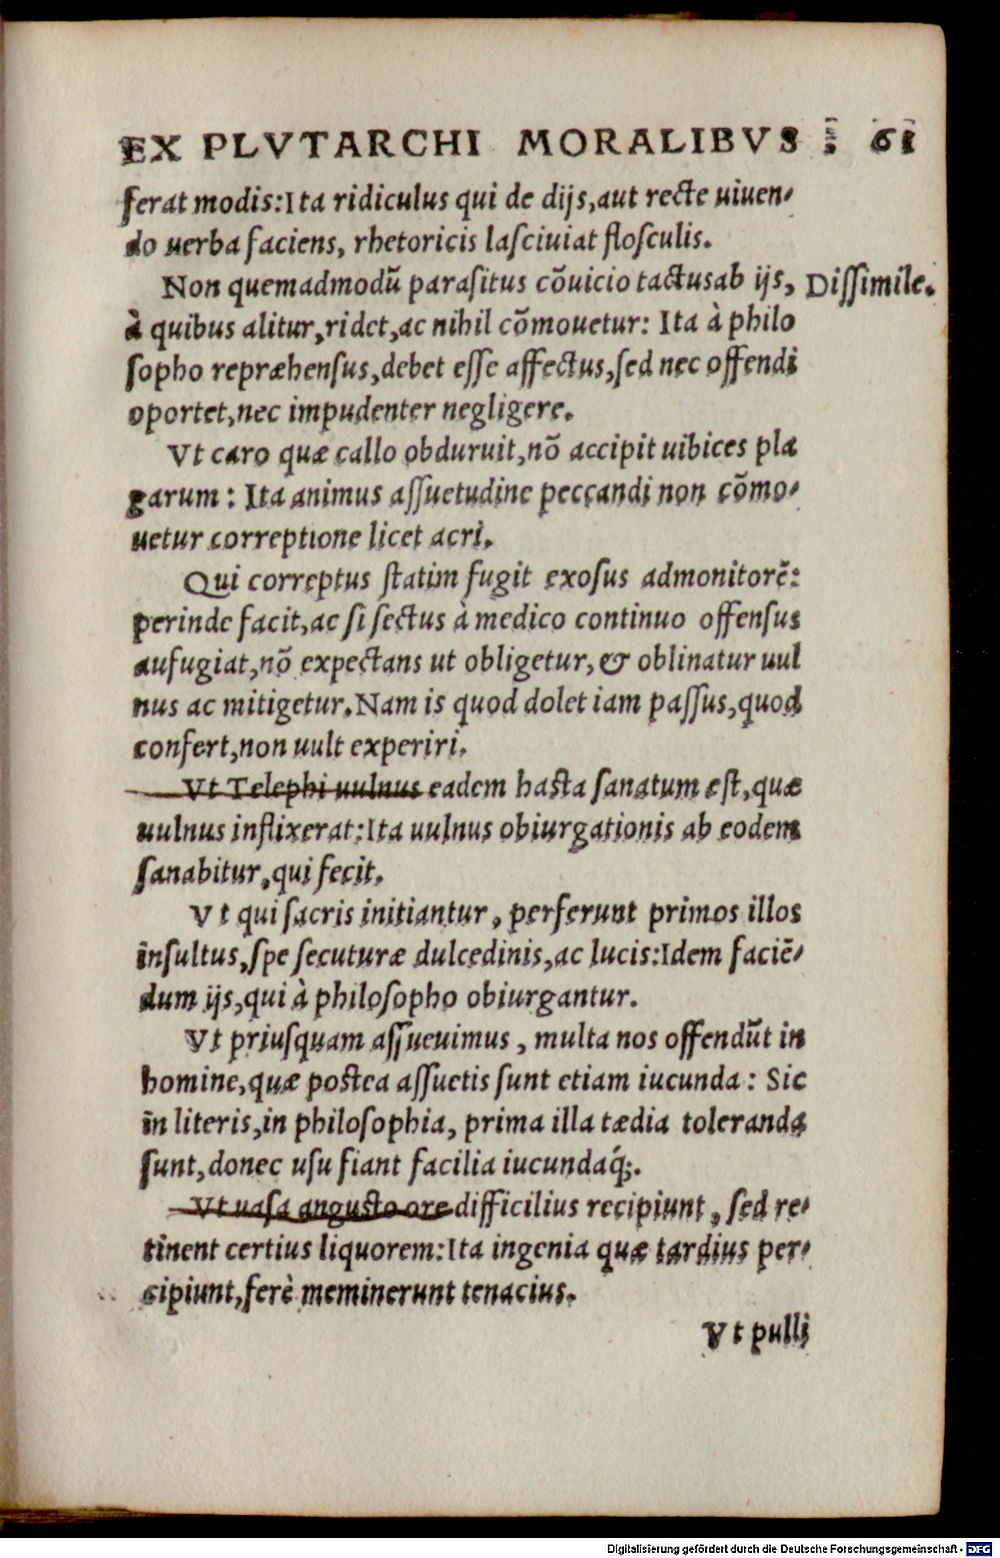 EX PLVTARCHI MORALIBVS 61
ferat modis:Ita ridiculus qui de dijs,aut recte uiuen-
do uerba faciens, rhetoricis lasciuiat flosculis.
Non quemadmodū parasitus cōuicio tactusab ijs, Dissimile.
à quibus alitur,ridet,ac nihil cōmouetur: Ita à philo
sopho repræhensus,debet esse affectus,sed nec offendi
oportet,nec impudenter negligere.
Vt caro quæ callo obduruit,nō accipit uibices pla
garum: Ita animus assuetudine peccandi non cōmo-
uetur correptione licet acri.
Qui correptus statim fugit exosus admonitorē:
perinde facit,ac si sectus à medico continuo offensus
aufugiat,nō expectans ut obligetur,& oblinatur uul
nus ac mitigetur.Nam is quod dolet iam passus,quod
confert,non uult experiri.
Vt Telephi uulnus eadem hasta sanatum est,quæ
uulnus inflixerat:Ita uulnus obiurgationis ab eodem
sanabitur,qui fecit.
Vt qui sacris initiantur, perferunt primos illos
insultus,spe secuturæ dulcedinis,ac lucis:Idem faciē-
dum ijs,qui à philosopho obiurgantur.
Vt priusquam assueuimus, multa nos offendūt in
homine,quæ postea assuetis sunt etiam iucunda: Sic
in literis,in philosophia, prima illa tædia toleranda
sunt,donec usu fiant facilia iucundaq́;.
Vt uasa angusto ore difficilius recipiunt, sed re-
tinent certius liquorem:Ita ingenia quæ tardius per-
cipiunt,ferè meminerunt tenacius.
Vt pulli
Digitalisierung gefördert durch die Deutsche Forschungsgemeinschaft - DFG